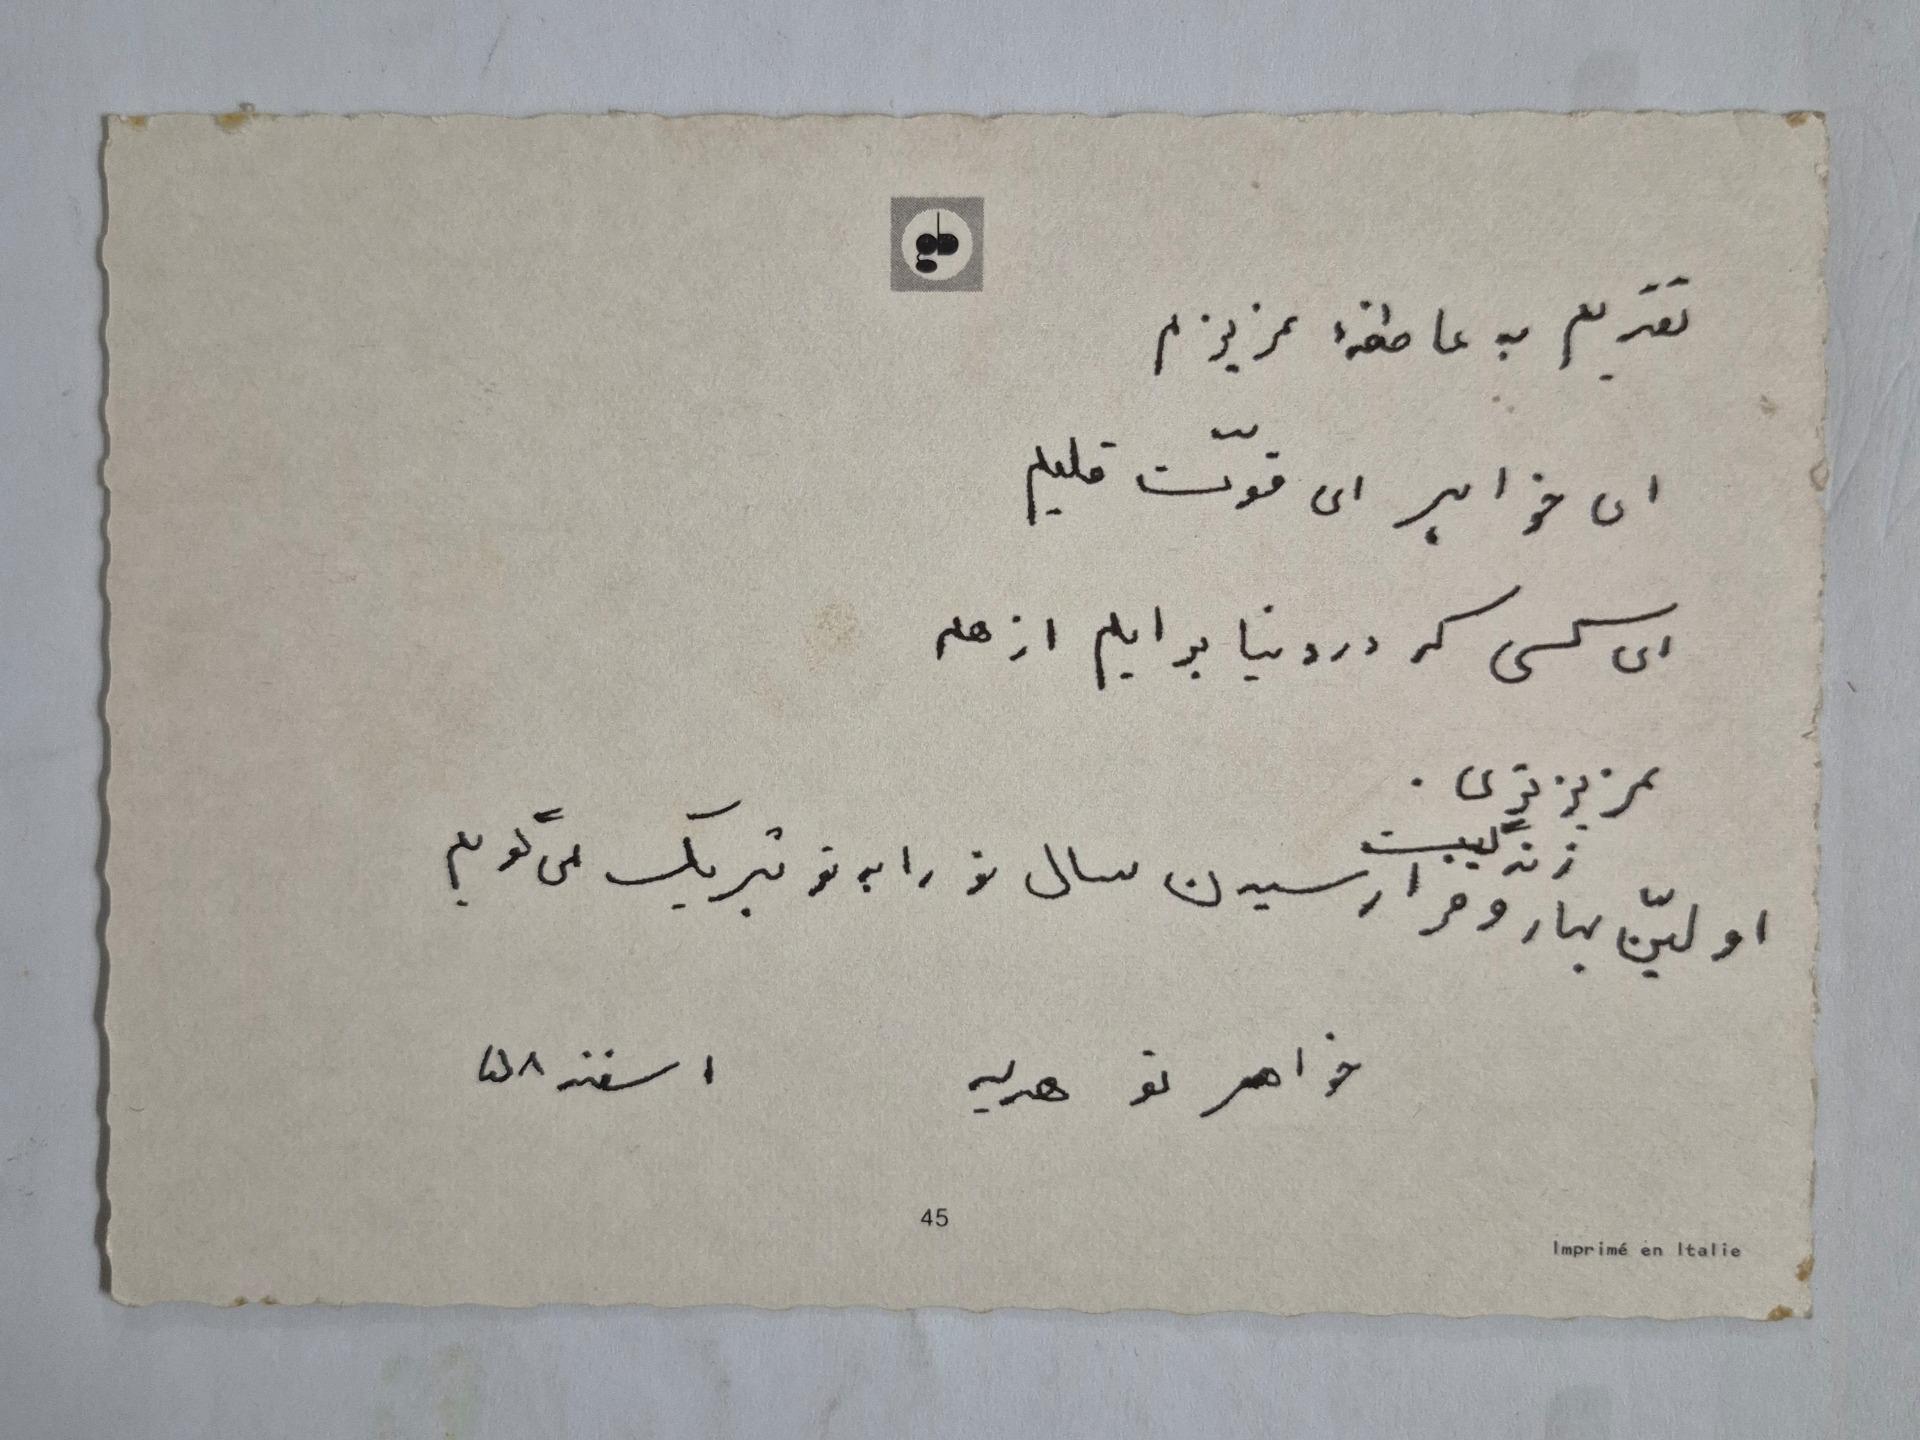 تقدیم به عاطفهٔ عزیزم
ای خواهر ای قوّت قلبم
ای کسی که در دنیا برایم از همه
عزیزتری .
زندگیت
اولیّن بهار و فرارسیدن سال نو را به تو تبریک می‌گویم
خواهر تو هدیه اسفند ۵۸
45
Imprimé en Italie